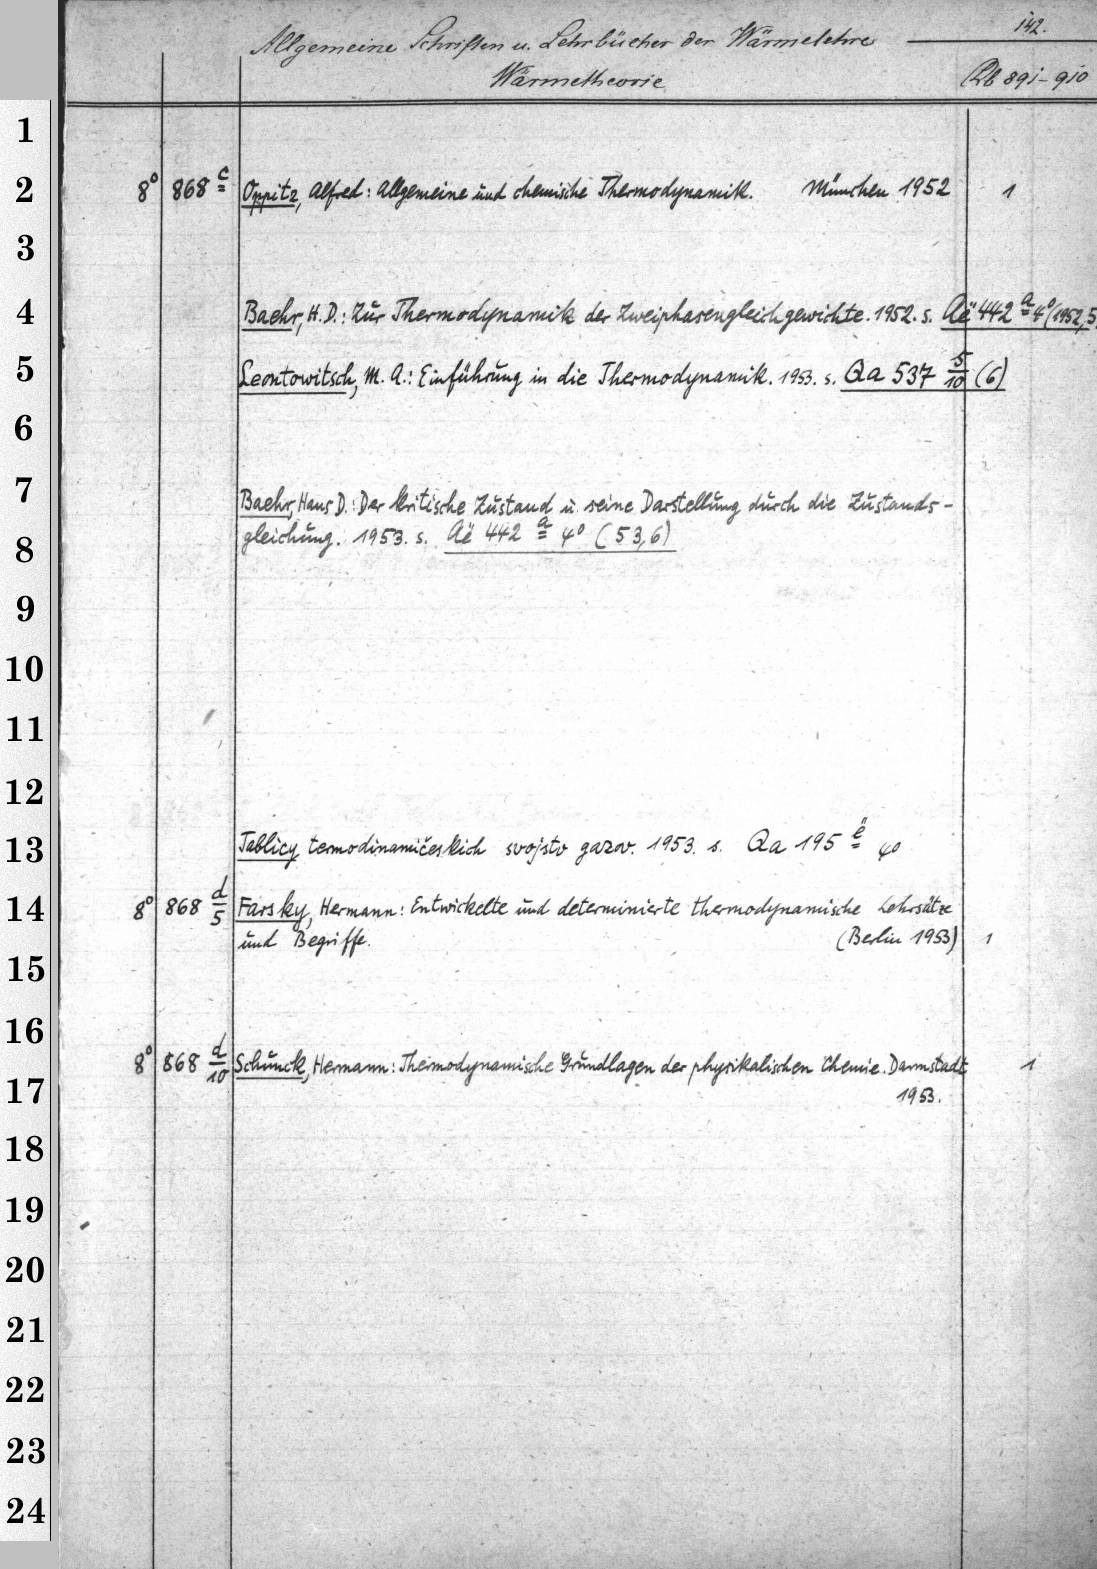 142.
Allgemeine Schriften u. Lehrbücher der Wärmelehre
Wärmetheorie
Qb 891-910
1
2 8° 868 c Oppitz, Alfred: Allgemeine und chemische Thermodynamik. München 1952 1
3
4 Baehr, H. D.: Zur Thermodynamik der Zweiphasengleichgewichte. 1952. s. Aë 442 a 4° (1952,5)
5 Leontowitsch, M. A.: Einführung in die Thermodynamik. 1953. s. Qa 537 5/10 (6)
6
7 Baehr, Hans D.: Der kritische Zustand u. seine Darstellung durch die Zustands-
8 gleichung. 1953. s. Aë 442 a 4° (53,6)
9
10
11
12
13 Tablicy termodinamičeskich svojstv gazov. 1953. s. Qa 195 ë 4°
14 8° 868 d/5 Farsky, Hermann: Entwickelte und determinierte thermodynamische Lehrsätze
und Begriffe. (Berlin 1953) 1
15
16
8° 868 d/10 Schunck, Hermann: Thermodynamische Grundlagen der physikalischen Chemie. Darmstadt 1
17 1953.
18
19
20
21
22
23
24